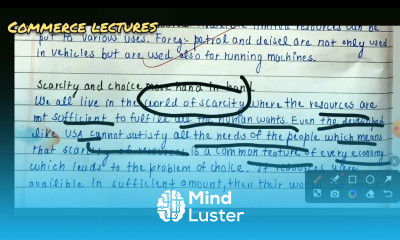 COMMERCE LECTURES
limited resources can be
put to various uses. For eg:- patrol and deisel are not only used
in vehicles but are used also for running machines.
Scarcity and choice move hand in hand
We all live in the world of scarcity where the resources are
not sufficient to fulfill all the human wants. Even the developed
like USA cannot satisfy all the needs of the people which means
that scarcity of resources is a common feature of every economy
which leads to the problem of choice. If resources were
availible in sufficient amount, then their
Mind
Luster